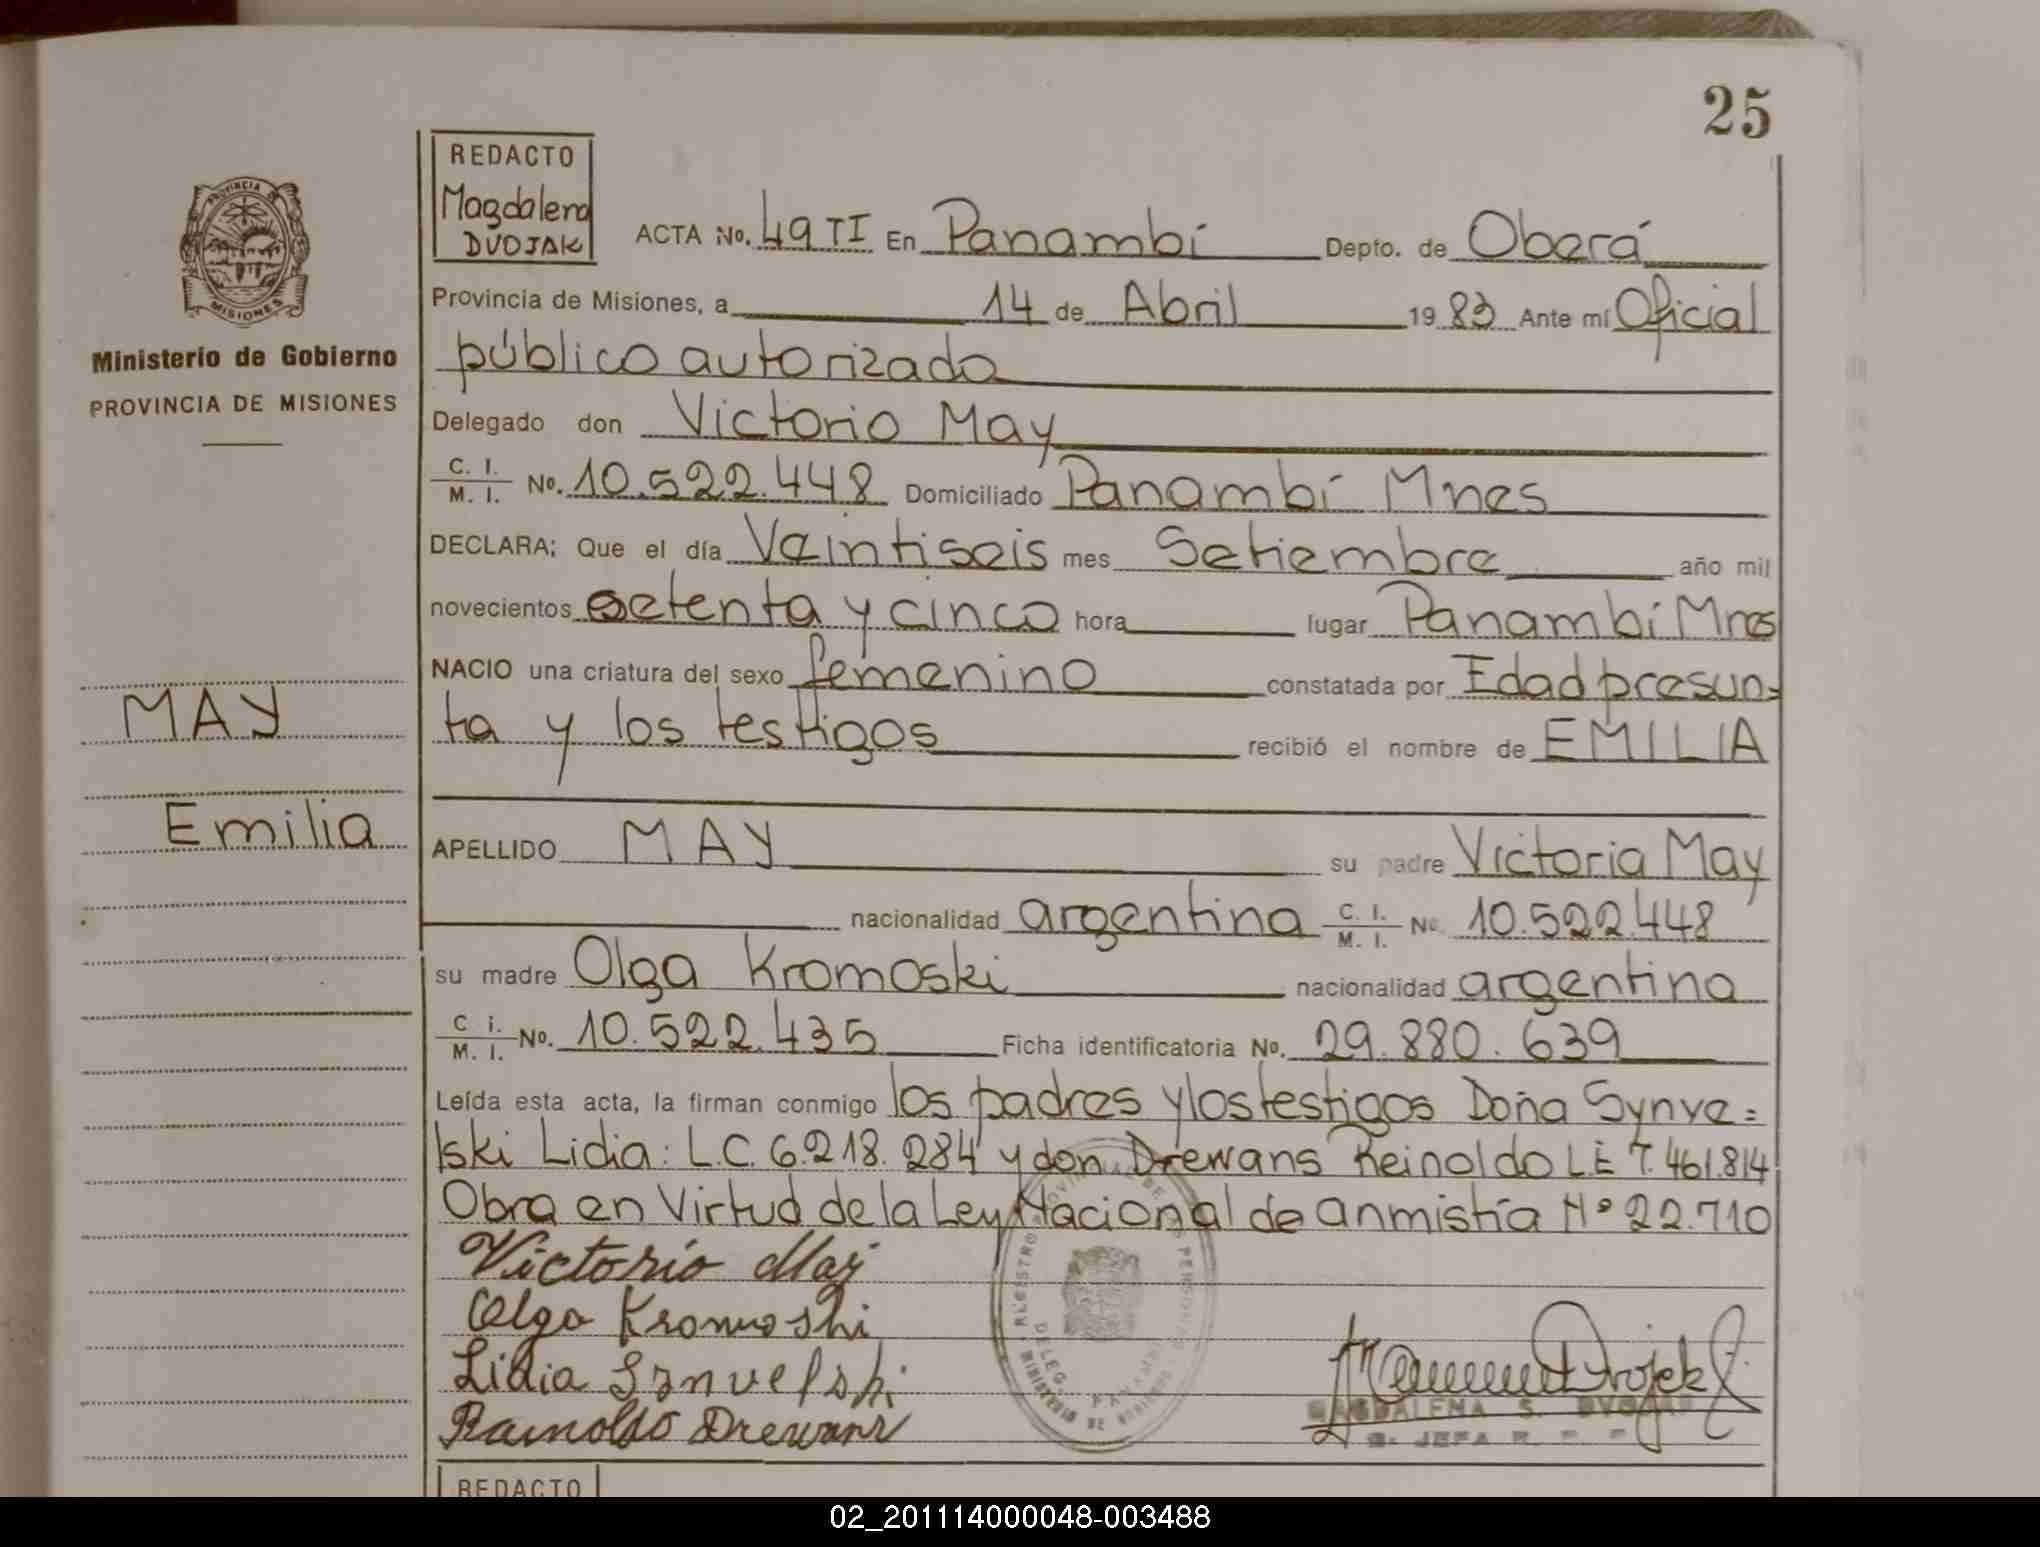 25
REDACTO
Magdalena
DVOJAK
ACTA No. 49 TI En Panambí Depto. de Oberá
Provincia de Misiones, a 14 de Abril 1983 Ante mí Oficial
público autorizado
Delegado don Victorio May
C. I. / M. I. No. 10.522.448 Domiciliado Panambí Mnes
DECLARA: Que el día Veintiseis mes Setiembre año mil
novecientos setenta y cinco hora lugar Panambí Mnes
NACIO una criatura del sexo femenino constatada por Edad presun-
ta y los testigos recibió el nombre de EMILIA
APELLIDO MAY su padre Victorio May
nacionalidad argentina C. I. / M. I. No. 10.522.448
su madre Olga Kromoski nacionalidad argentina
C i. / M. I. No. 10.522.435 Ficha identificatoria No. 29.880.639
Leída esta acta, la firman conmigo los padres y los testigos Doña Synve=
lski Lidia: L.C. 6.218.284 y don Drewans Reinoldo L.E 7.461.814
Obra en Virtud de la Ley Nacional de anmistía Nº 22.710
Victorio May
Olga Kromoski
Lidia
Rainoldo Drewans
MAGDALENA S. DVOJAK
PROVINCIA DE
MISIONES
Ministerio de Gobierno
PROVINCIA DE MISIONES
MAY
Emilia
REDACTO
02_201114000048-003488